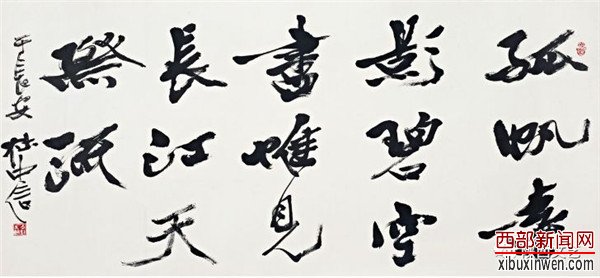 孤帆遠
影碧空
盡惟見
長江天
際流
長安
杜中信
西部新闻网
xibuxinwen.com